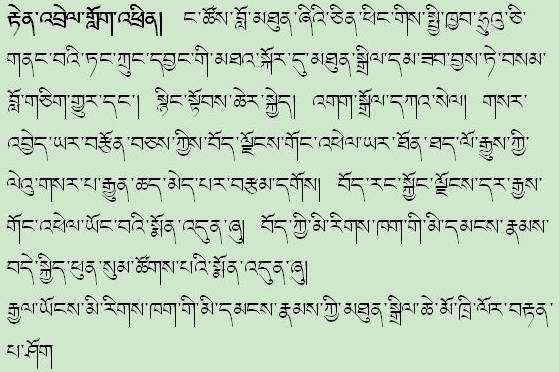 རྟེན་འབྲེལ་གློག་འཕྲིན། ང་ཚོས་བློ་མཐུན་ཞིའི་ཅིན་ཕིང་གིས་སྤྱི་ཁྱབ་ཧྲུའུ་ཅི་
གནང་བའི་ཏང་ཀྲུང་དབྱང་གི་མཐའ་སྐོར་དུ་མཐུན་སྒྲིལ་དམ་ཟབ་བྱས་ཏེ་བསམ་
བློ་གཅིག་གྱུར་དང་། སྙིང་སྟོབས་ཆེར་སྐྱེད། འགག་སྒྲོལ་དཀའ་སེལ། གསར་
འབྱེད་ཡར་བརྩོན་བཅས་ཀྱིས་བོད་ལྗོངས་གོང་འཕེལ་ཡར་ཐོན་ཐད་ལོ་རྒྱུས་ཀྱི་
ལེའུ་གསར་པ་རྒྱུན་ཆད་མེད་པར་བརྩམ་དགོས། བོད་རང་སྐྱོང་ལྗོངས་དར་རྒྱས་
གོང་འཕེལ་ཡོང་བའི་སྨོན་འདུན་ཞུ། བོད་ཀྱི་མི་རིགས་ཁག་གི་མི་དམངས་རྣམས་
བདེ་སྐྱིད་ཕུན་སུམ་ཚོགས་པའི་སྨོན་འདུན་ཞུ།
རྒྱལ་ཡོངས་མི་རིགས་ཁག་གི་མི་དམངས་རྣམས་ཀྱི་མཐུན་སྒྲིལ་ཆེ་མོ་ཁྲི་ལོར་བརྟན་
པ་ཤོག